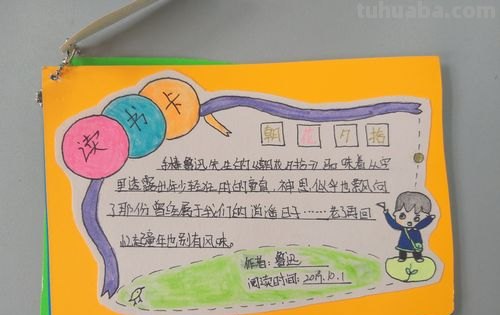 tuhuaba.com
读书卡
朝花夕拾
手捧鲁迅先生的《朝花夕拾》品味着从里
里透露出年少轻狂用的童真，神思似乎也飘向
了那份曾经属于我们的逍遥日子……老了再回
忆童年也别有风味。
作者：鲁迅
阅读时间：2019.10.1